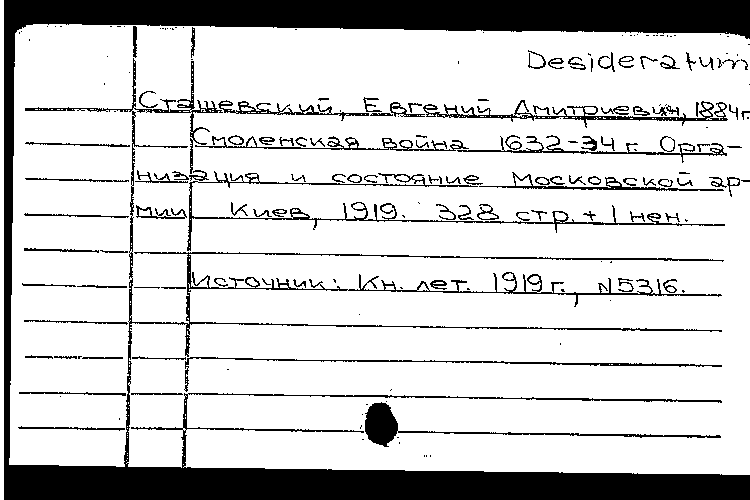 Desideratum
Сташевский, Евгений Дмитриевич, 1884г.
Смоленская война 1632-34 г. Орга-
низация и состояние Московской ар-
мии Киев, 1919. 328 стр. + 1 нен.
Источник: Кн. лет. 1919 г., N5316.